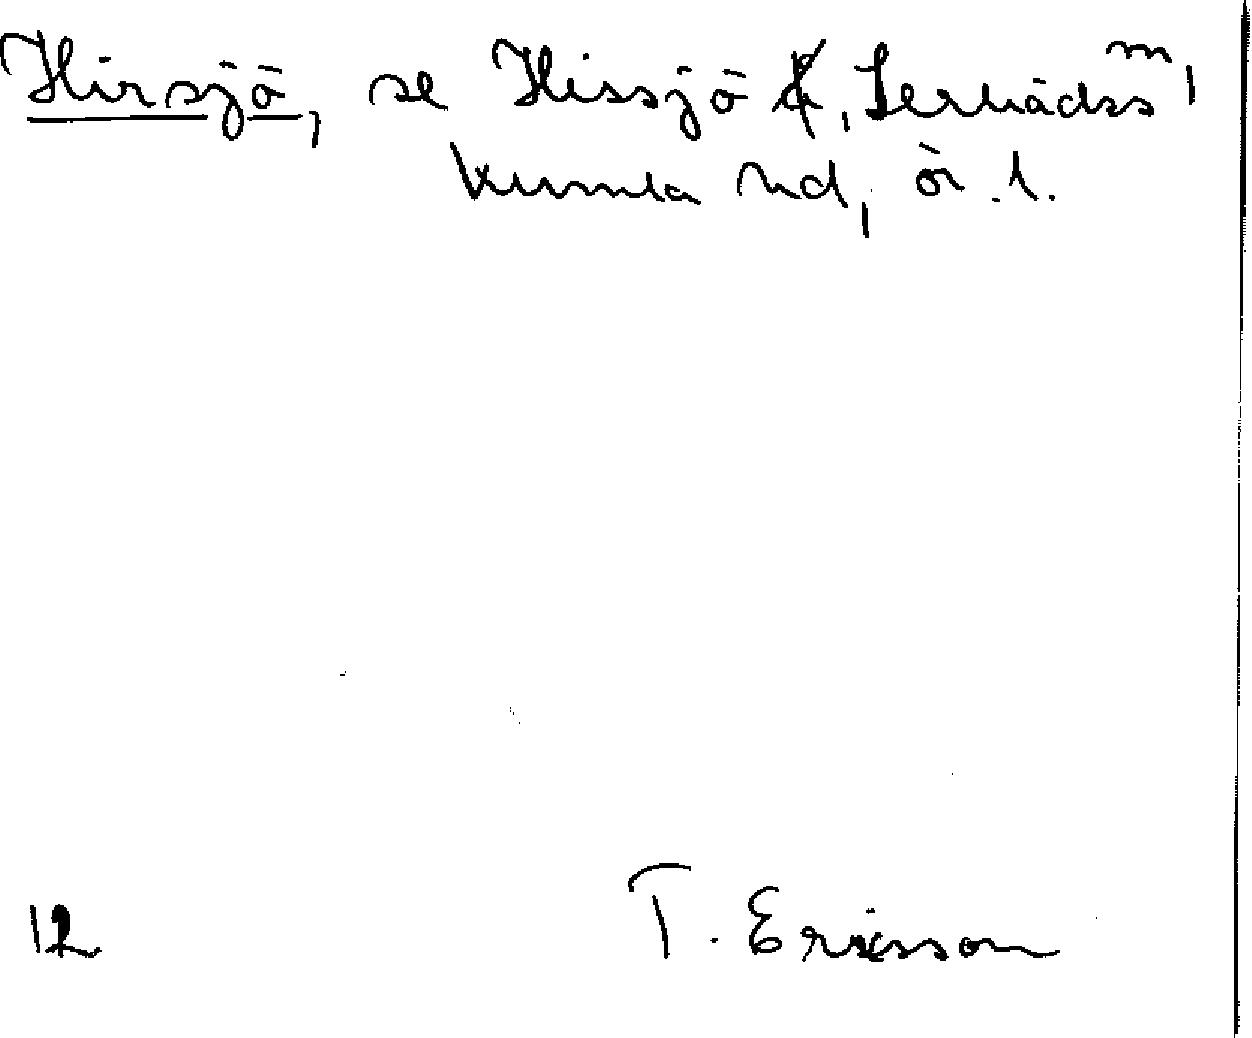 Hirsjö, se Hissjö, Lerbäcks sn,
Kumla hd, ör. l.
12 T. Ericsson